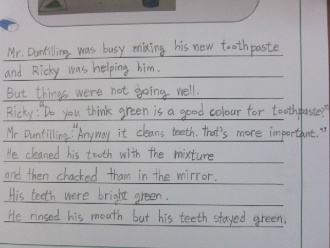 Mr. Dunfilling was busy mixing his new toothpaste
and Ricky was helping him.
But things were not going well.
Ricky: "Do you think green is a good colour for toothpaste?"
Mr Dunfilling: "Anyway it cleans teeth. that's more important."
He cleaned his tooth with the mixture
and then chacked tham in the mirror.
His teeth were bright green.
He rinsed his mouth but his teeth stayed green.